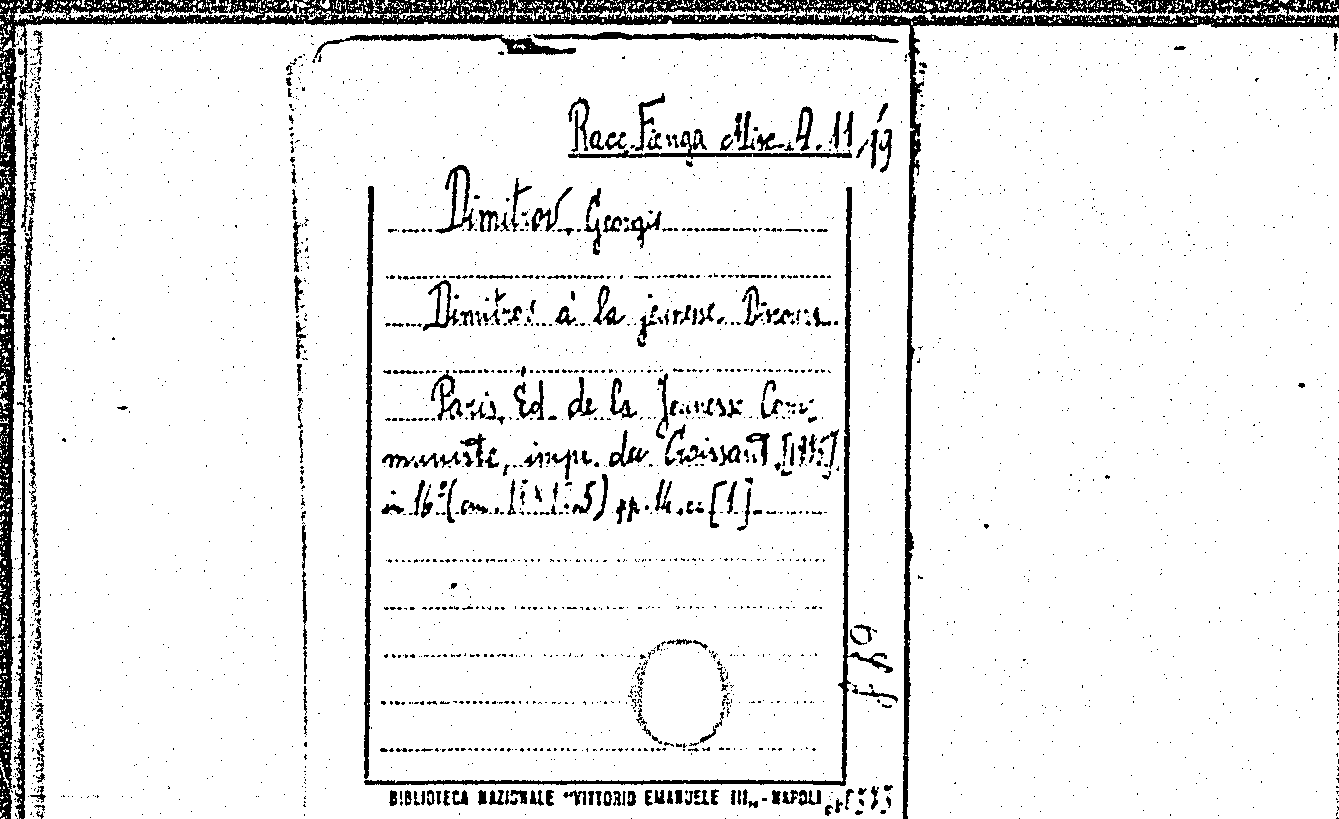 Racc. Fienga Misc. A. 11/19
Dimitrov, Georgis
Dimitrov à la jeunesse. Discours.
Paris, Éd. de la Jeunesse Com-
muniste, impr. du Croissant, [1935]
in 16° (cm. ) pp. 14. cc [1].
BIBLIOTECA NAZIONALE "VITTORIO EMANUELE III„ - NAPOLI